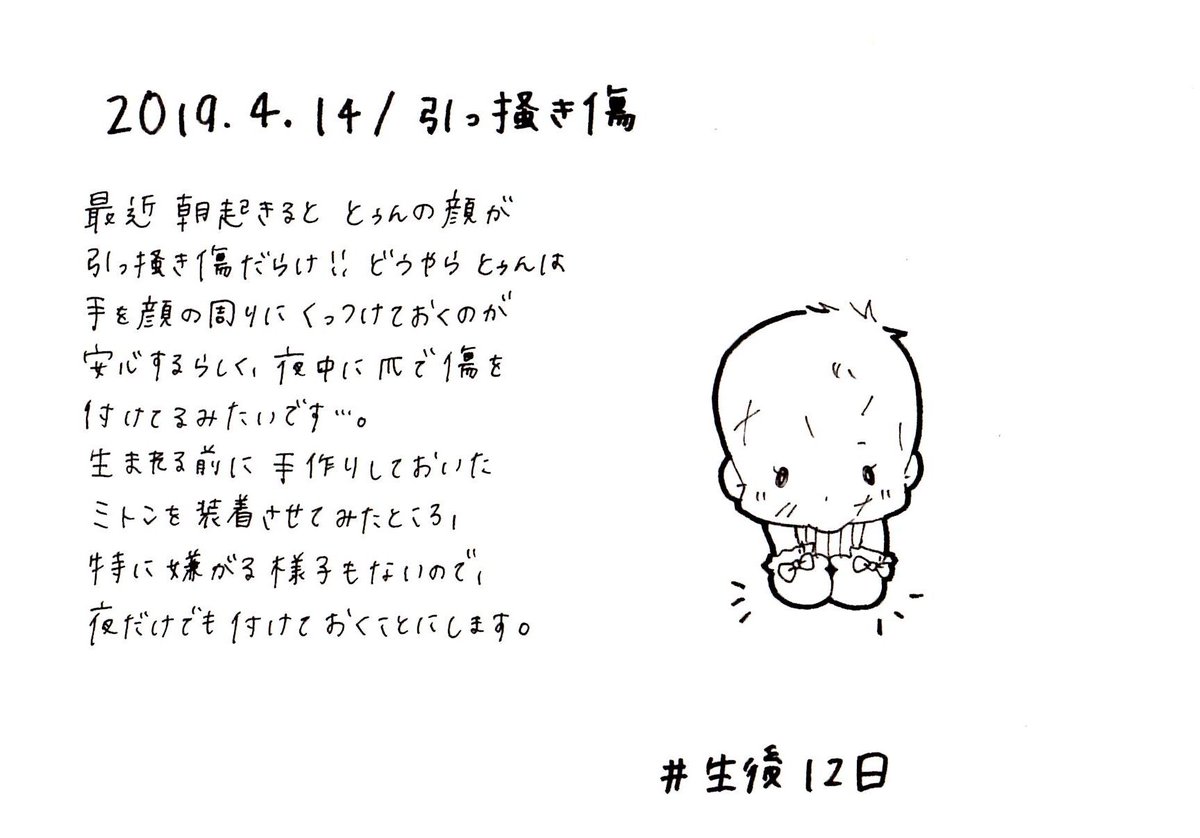 2019.4.14/引っ掻き傷
最近 朝起きると とぅんの顔が
引っ掻き傷だらけ!! どうやら とぅんは
手を顔の周りにくっつけておくのが
安心するらしく、夜中に爪で傷を
付けてるみたいです…。
生まれる前に 手作りしておいた
ミトンを装着させてみたところ、
特に嫌がる様子もないので、
夜だけでも付けておくことにします。
#生後12日